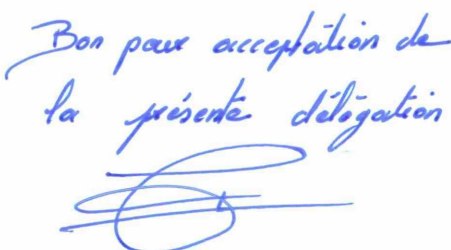 Bon pour acceptation de
la présente délégation